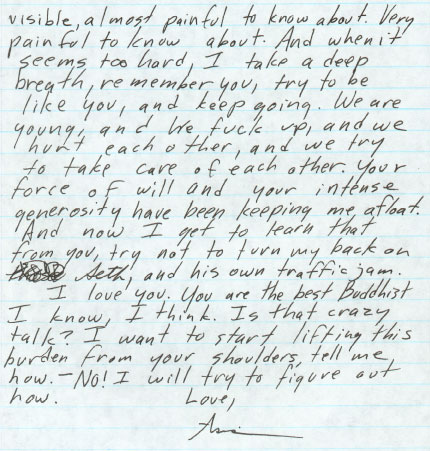 visible, almost painful to know about. Very
painful to know about. And when it
seems too hard, I take a deep
breath, remember you, try to be
like you, and keep going. We are
young, and we fuck up, and we
hurt each other, and we try
to take care of each other. Your
force of will and your intense
generosity have been keeping me afloat.
And now I get to learn that
from you, try not to turn my back on
Seth, and his own traffic jam.
I love you. You are the best Buddhist
I know, I think. Is that crazy
talk? I want to start lifting this
burden from your shoulders, tell me
how. — No! I will try to figure out
how. Love,